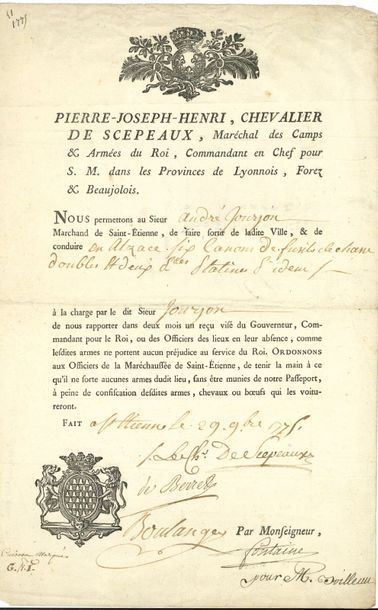 PIERRE-JOSEPH-HENRI, CHEVALIER
DE SCEPEAUX, Maréchal des Camps
& Armées du Roi, Commandant en Chef pour
S. M. dans les Provinces de Lyonnois, Forez
& Beaujolois.
NOUS permettons au Sieur André Jourjon
Marchand de Saint-Étienne, de faire sortir de ladite Ville, & de
conduire en Alzace six Canons de fusils de chasse
doubles & deux
à la charge par le dit Sieur Jourjon
de nous rapporter dans deux mois un reçu visé du Gouverneur, Com-
mandant pour le Roi, ou des Officiers des lieux en leur absence, comme
lesdites armes ne portent aucun préjudice au service du Roi. ORDONNONS
aux Officiers de la Maréchaussée de Saint-Étienne, de tenir la main à ce
qu'il ne sorte aucunes armes dudit lieu, sans être munies de notre Passeport,
à peine de confiscation desdites armes, chevaux ou bœufs qui les voitu-
reront.
FAIT St Etienne le 29 9bre
De Scepeaux
Boulanger Par Monseigneur,
fontaine
G.N.I.
pour M.